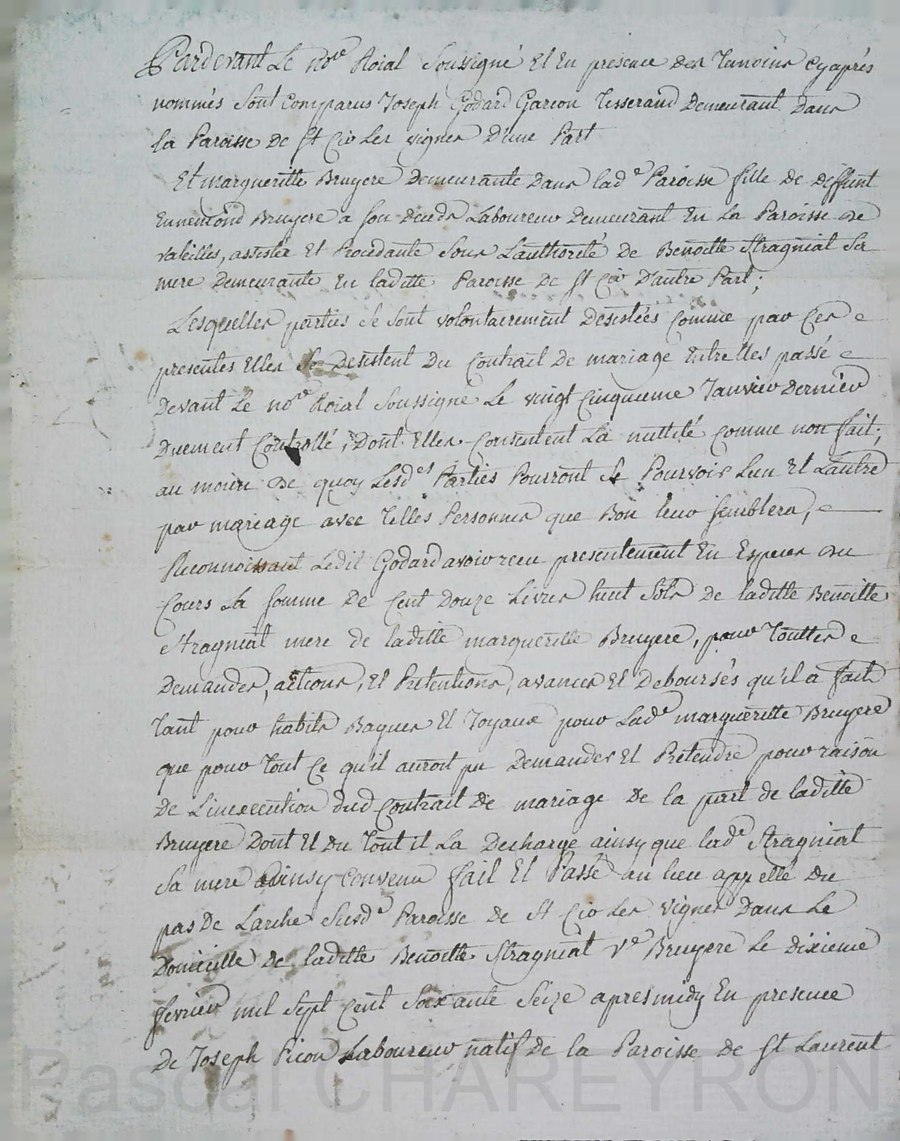 Pardevant Le no.re Roial Soussigné Et En presence des Temoins Cyaprés
nommés Sont Comparus Joseph Godard Garcon Tisserand Demeurant Dans
la Paroisse de St Cir Les vignes D'une Part
Et margueritte Bruyere Demeurante Dans lad.e Paroisse fille de Deffunt
Ennemond Bruyere a son deceds Laboureur Demeurant En La Paroisse de
valeilles, assistée Et Procedante Sous L'authorité de Benoitte Stragniat Sa
mere Demeurante En laditte Paroisse De St Cir D'autre Part;
Lesquelles parties Se Sont volontairement Desistées Comme par Ces
presentes Elles Se Desistent Du Contrait De mariage Entrelles passé
Devant Le no.re Roial Soussigné Le vingt Cinquieme Janvier Dernier
Duement Controllé, Dont Elles Consentent La nullité Comme non fait;
au moien de quoy Lesd.es Parties Pourront Se Pourvoir Lun Et Lautre
par mariage avec Telles Personnes que Bon leur Semblera,
Reconnoissant Ledit Godard avoir receu presentement En Especes du
Cours La Somme De Cent Douze Livres huit Sols De laditte Benoitte
Stragniat mere de laditte margueritte Bruyere, pour Touttes
Demandes, actions, Et Pretentions, avances Et Deboursés qu'il a fait
Tant pour habits Bagues Et Joyaux pour Lad.e margueritte Bruyere
que pour Tout Ce qu'il auroit pu Demander Et Pretendre pour raison
De L'inexecution dud Contrait de mariage De la part de laditte
Bruyere Dont Et du Tout il La Decharge ainsy que lad.e Stragniat
Sa mere ainsy Convenu fait Et Passé au lieu appellé Du
pas De Larche Susd.e Paroisse de St Cir Les vignes Dans Le
Domicille de laditte Benoitte Stragniat V.e Bruyere Le dixieme
fevrier mil Sept Cent Soixante Seize apresmidy En presence
De Joseph Picon Laboureur natif de la Paroisse de St Laurent
Pascal CHAREYRON